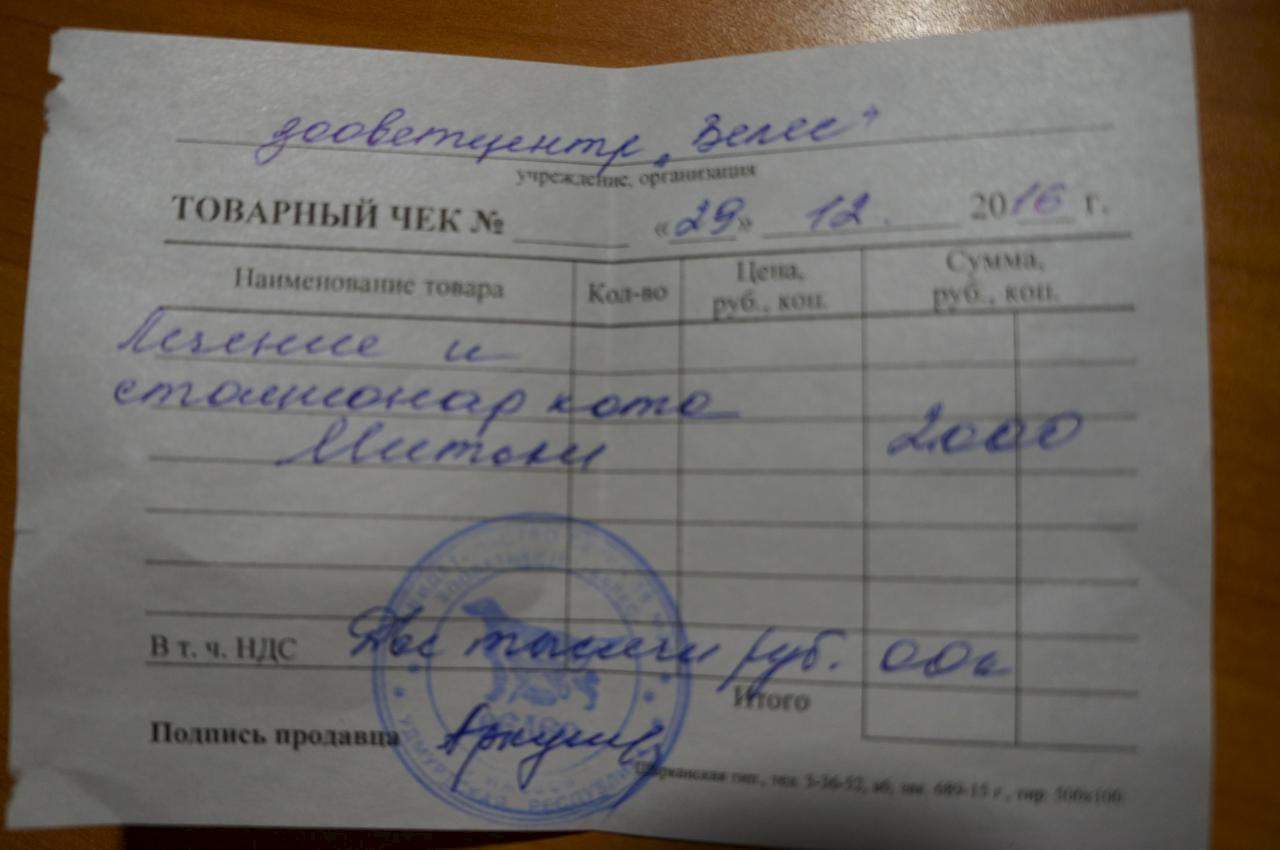 зооветцентр „Велес"
учреждение, организация
ТОВАРНЫЙ ЧЕК № «29» 12. 2016 г.
Наименование товара Кол-во Цена, руб., коп. Сумма, руб., коп.
Лечение и
стационар кота
Митьки 2000
В т. ч. НДС Две тысячи руб. 00к
Итого
Подпись продавца
УДМУРТСКАЯ РЕСПУБЛИКА
Шарканская тип., тел. 3-36-52, зак. 689-15 г., тир. 500х100